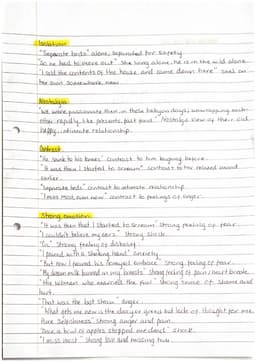 Isolation:
"Separate beds" alone, separated for safety.
"So he had to move out" She living alone, he is in the wild alone.
"I sold the contents of the house and came down here" Sad on her own somewhere new.
Nostalgia
"We were passionate then, in those halcyon days; unwrapping each
other, rapidly, like presents, fast food." Nostalgic view of their old
happy, intimate relationship.
Contrast
"He sank to his knees" contrast to him laughing before.
"It was then I started to scream" contrast to her relaxed mood
earlier.
"Separate beds" contrast to intimate relationship
"I miss most, even now" contrast to feelings of anger.
Strong emotion
"It was then that I started to scream" Strong feeling of fear.
"I couldn't believe my ears" Strong shock.
"Or" Strong feeling of disbelief.
"I poured with a shaking hand" anxiety
"But now I feared his honeyed embrace" Strong feeling of fear.
"My dream milk burned in my breasts" Strong feeling of pain / heart break.
"the woman who married the fool" Strong sense of shame and
hurt.
"That was the last straw" Anger
"What gets me now is the idiocy or greed but lack of thought for me.
Pure selfishness" Strong anger and pain.
"Like a bowl of apples stopped me dead" Shock.
"I miss most" Strong love and missing him.